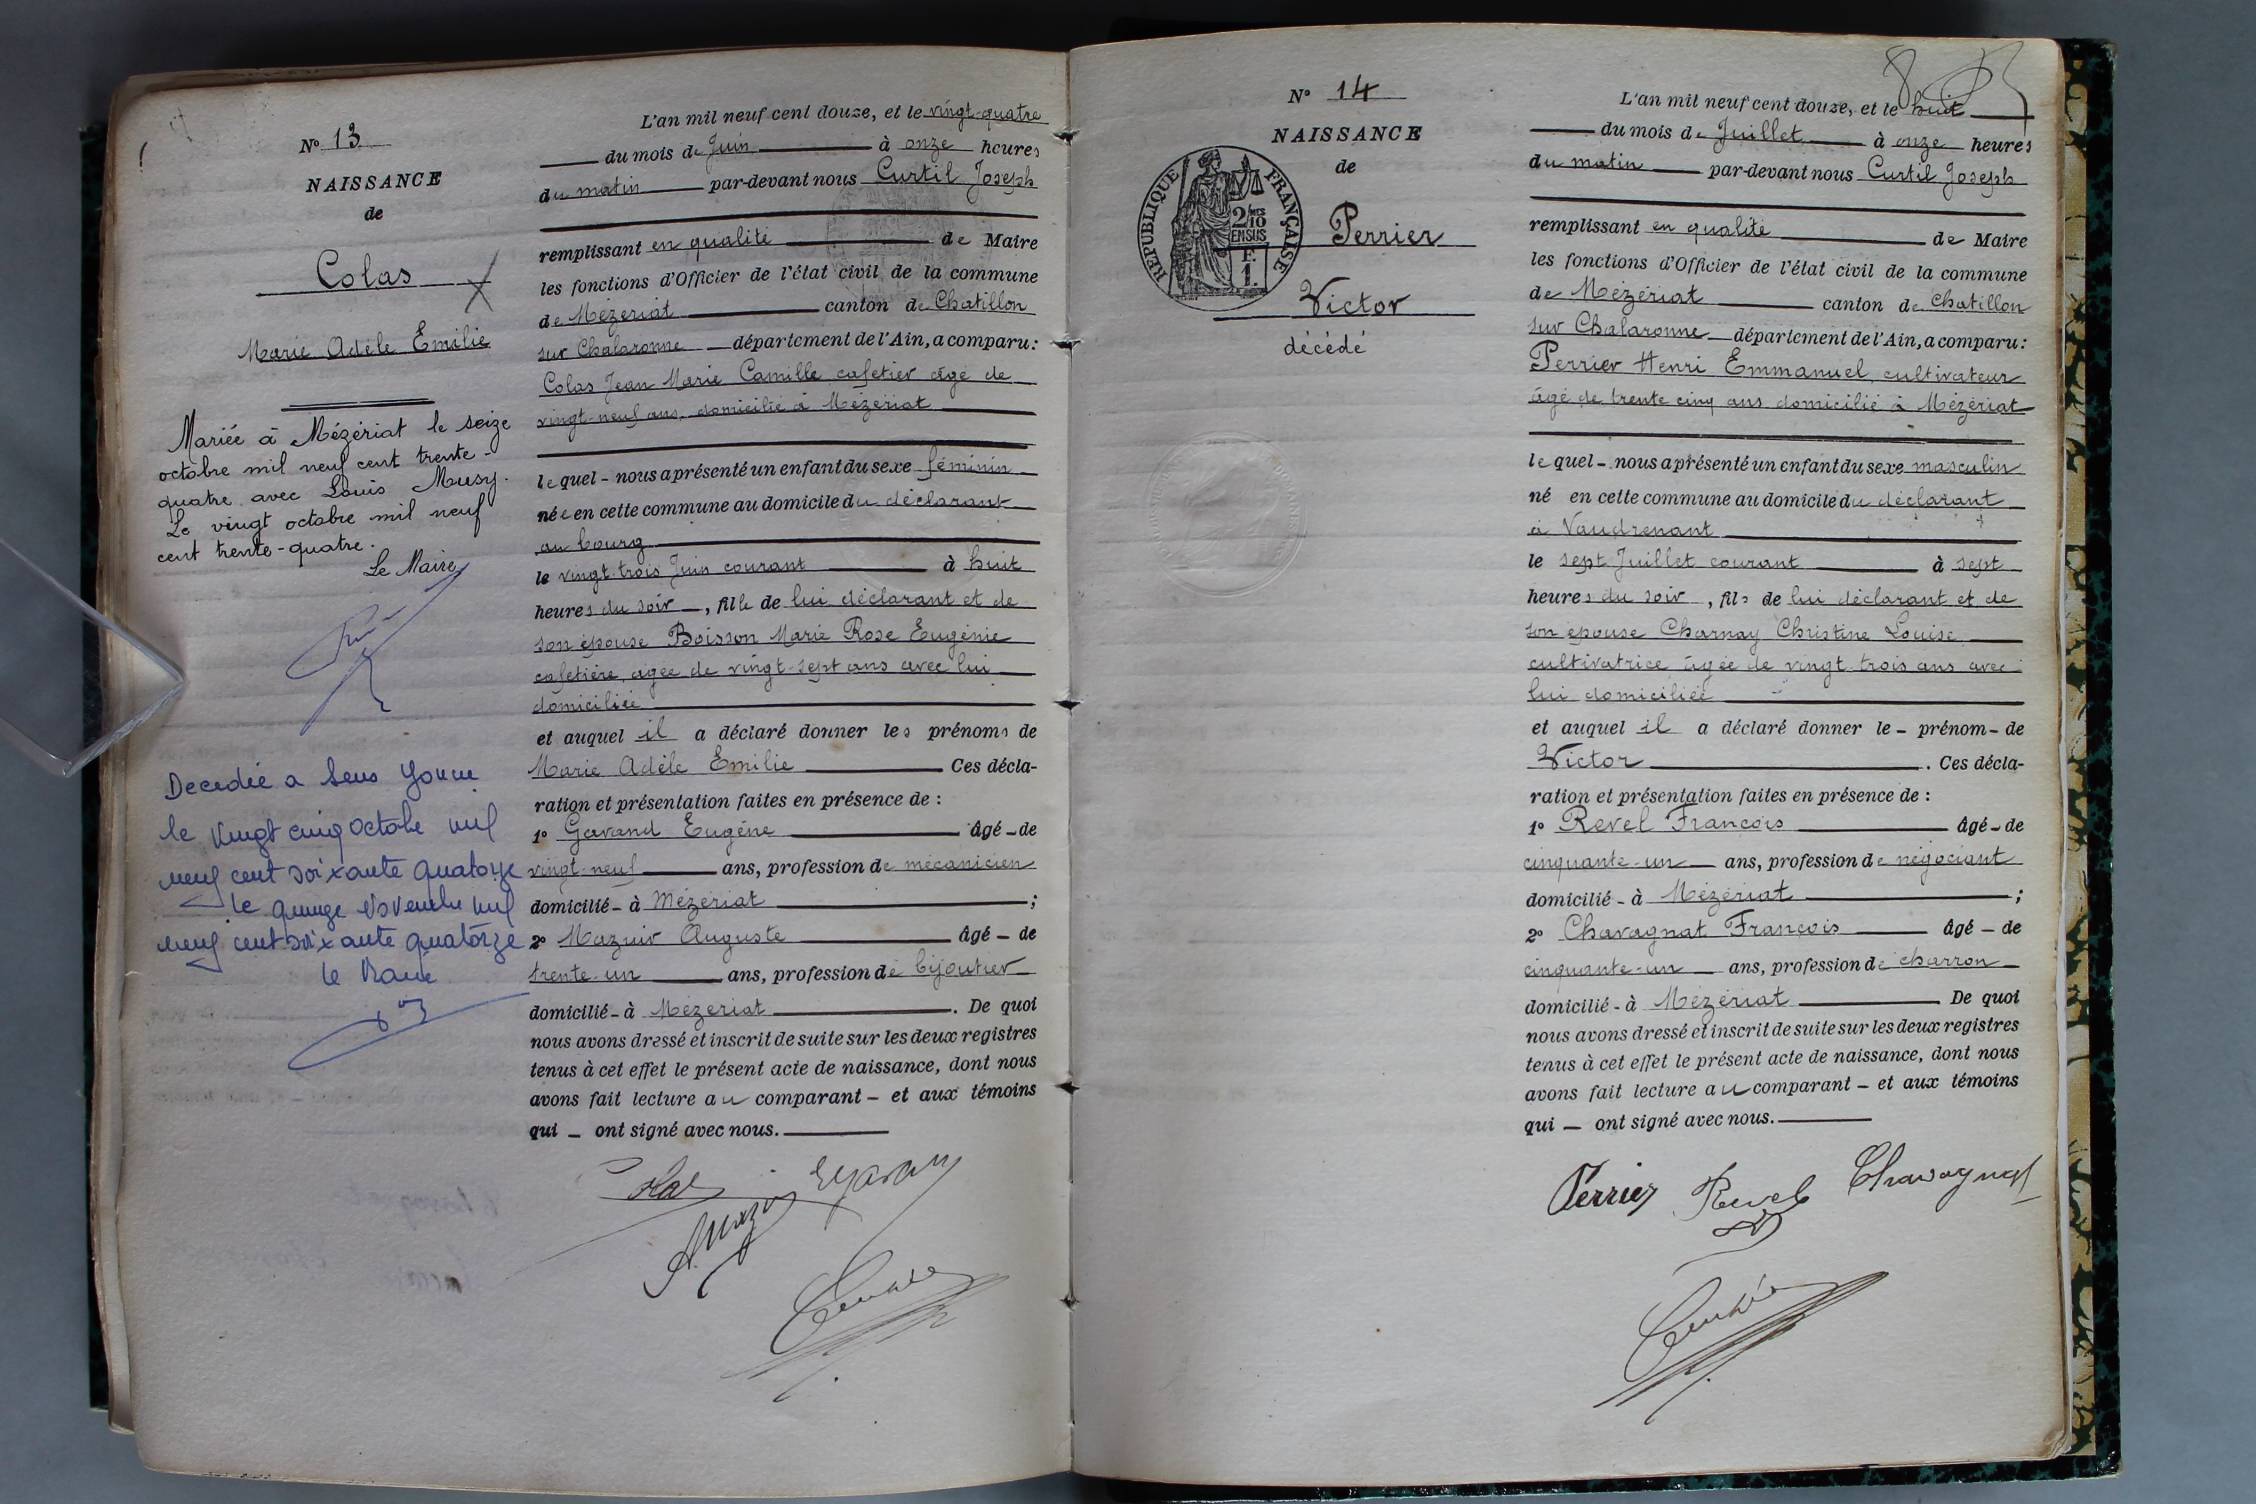 N° 13
NAISSANCE
de
Colas
Marie Adèle Emilie
Mariée à Mézériat le seize
octobre mil neuf cent trente-
quatre avec Louis Musy.
Le vingt octobre mil neuf
cent trente-quatre.
Le Maire
Decedée a Sens Yonne
le vingt cinq octobre mil
neuf cent soixante quatorze
le quinze Novembre mil
neuf cent soixante quatorze
le Maire
L'an mil neuf cent douze, et le vingt-quatre
du mois de Juin à onze heures
du matin par-devant nous Curtil Joseph
remplissant en qualité de Maire
les fonctions d'Officier de l'état civil de la commune
de Mézériat canton de Chatillon
sur Chalaronne département de l'Ain, a comparu:
Colas Jean Marie Camille cafetier âgé de
vingt-neuf ans, domicilié à Mézériat
lequel - nous a présenté un enfant du sexe féminin
née en cette commune au domicile du déclarant
au bourg
le vingt-trois Juin courant à huit
heures du soir, fille de lui déclarant et de
son épouse Boisson Marie Rose Eugénie
cafetière, agée de vingt-sept ans avec lui
domiciliée
et auquel il a déclaré donner les prénoms de
Marie Adèle Emilie Ces décla-
ration et présentation faites en présence de :
1° Gavand Eugène âgé - de
vingt-neuf ans, profession de mécanicien
domicilié - à Mézériat ;
2° Mazuir Auguste âgé - de
trente-un ans, profession de bijoutier
domicilié - à Mézériat . De quoi
nous avons dressé et inscrit de suite sur les deux registres
tenus à cet effet le présent acte de naissance, dont nous
avons fait lecture au comparant - et aux témoins
qui - ont signé avec nous.
Colas
N° 14
NAISSANCE
de
REPUBLIQUE FRANÇAISE
2/10mes
EN SUS
F.
1.
Perrier
Victor
décédé
L'an mil neuf cent douze, et le huit
du mois de Juillet à onze heures
du matin par-devant nous Curtil Joseph
remplissant en qualité de Maire
les fonctions d'Officier de l'état civil de la commune
de Mézériat canton de Chatillon
sur Chalaronne département de l'Ain, a comparu:
Perrier Henri Emmanuel, cultivateur
âgé de trente cinq ans domicilié à Mézériat
lequel - nous a présenté un enfant du sexe masculin
né en cette commune au domicile du déclarant
à Vaudrenant
le sept Juillet courant à sept
heures du soir, fils de lui déclarant et de
son épouse Charnay Christine Louise
cultivatrice âgée de vingt trois ans avec
lui domiciliée
et auquel il a déclaré donner le - prénom - de
Victor . Ces décla-
ration et présentation faites en présence de :
1° Revel François âgé - de
cinquante-un ans, profession de négociant
domicilié - à Mézériat ;
2° Chavagnat François âgé - de
cinquante-un ans, profession de charron
domicilié - à Mézériat De quoi
nous avons dressé et inscrit de suite sur les deux registres
tenus à cet effet le présent acte de naissance, dont nous
avons fait lecture au comparant - et aux témoins
qui - ont signé avec nous.
Perrier Revel Chavagnat